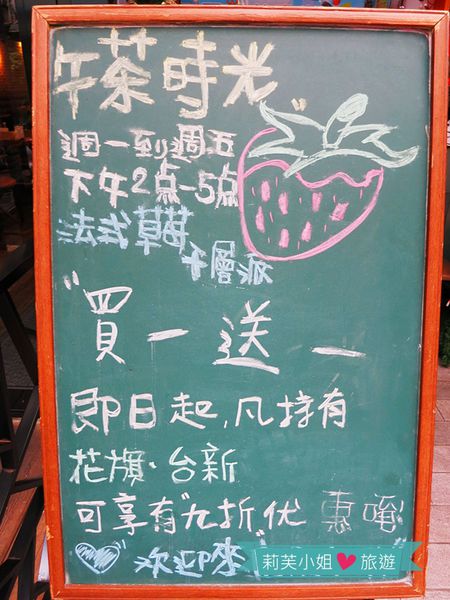 午茶時光
週一到週五
下午2点-5点
法式草莓
千層派
"買一送一
即日起,凡持有
花旗·台新
可享有"九折优惠唷
歡迎P來
莉芙小姐❤旅遊